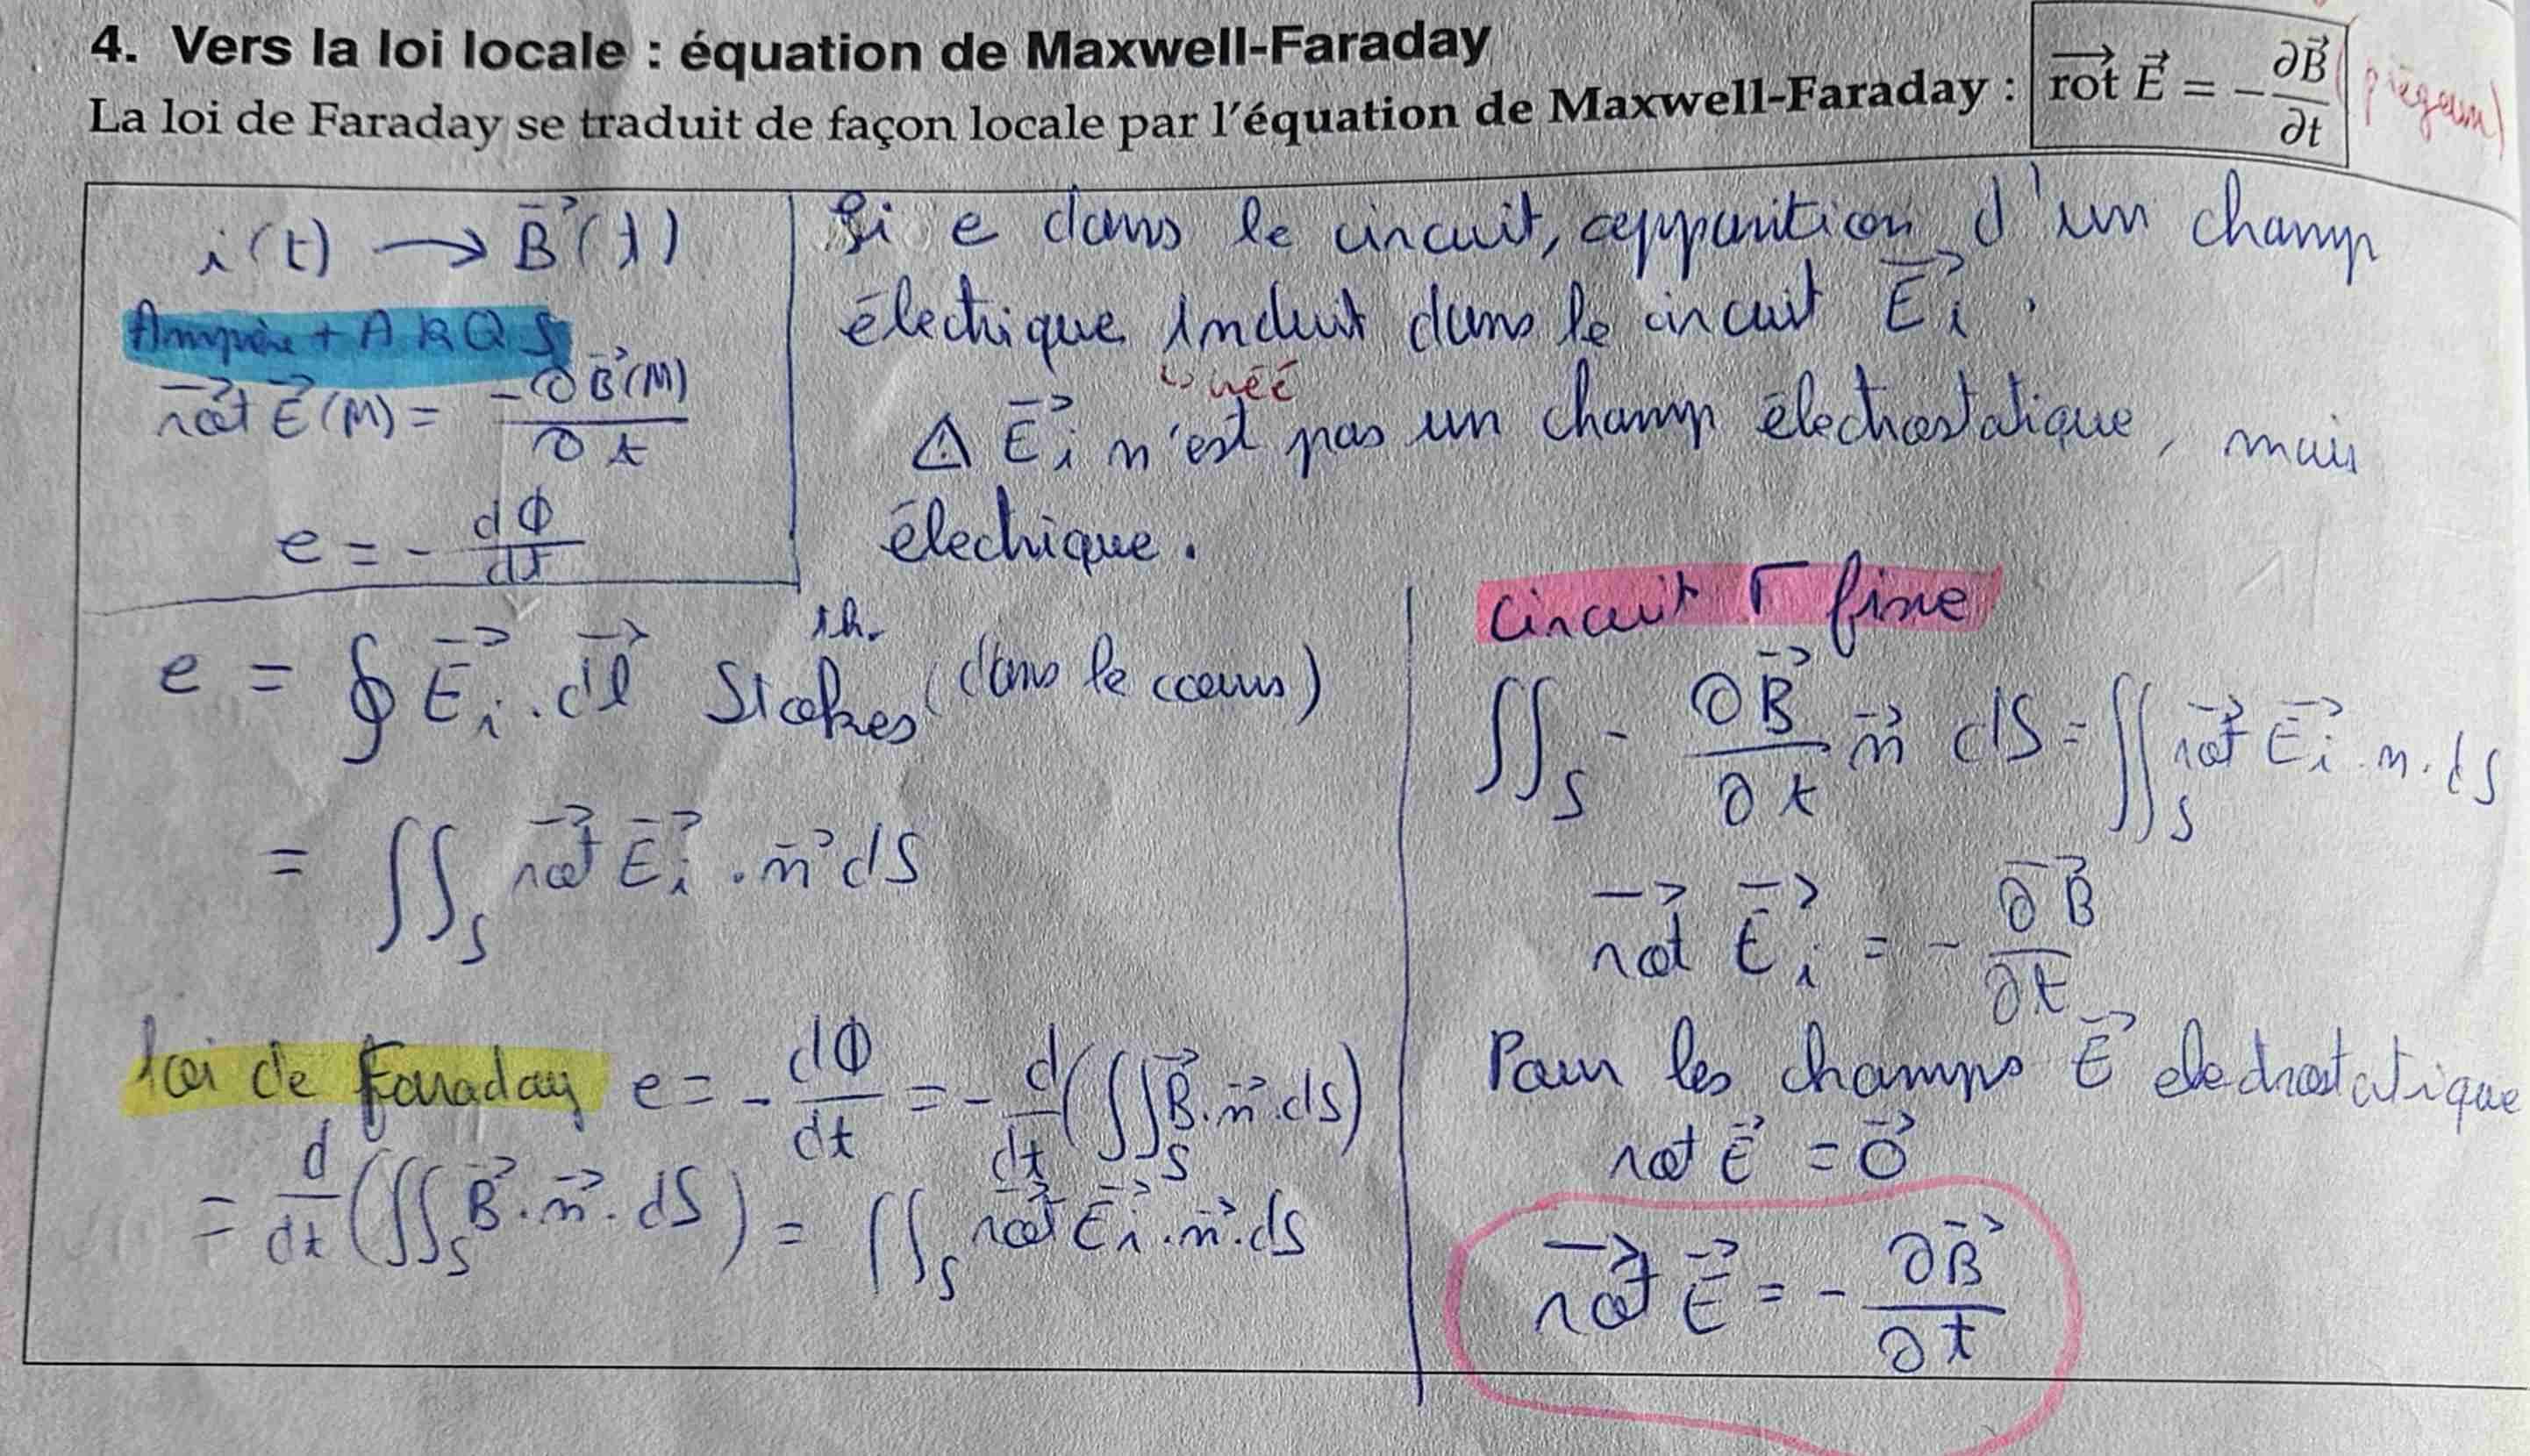 4. Vers la loi locale : équation de Maxwell-Faraday
La loi de Faraday se traduit de façon locale par l'équation de Maxwell-Faraday : rot E⃗ = -∂B⃗/∂t
i(t) → B⃗(t)
Ampère + ARQS
rot E⃗(M) = -∂B⃗(M)/∂t
e = - dΦ/dt
Si e dans le circuit, apparition d'un champ
électrique induit dans le circuit E⃗i.
↳ créé
⚠ E⃗i n'est pas un champ électrostatique, mais
électrique.
e = ∮ E⃗i . dl⃗ th. Stokes (dans le cours)
= ∬S rot E⃗i . n⃗ dS
Loi de Faraday e = - dΦ/dt = - d/dt (∬S B⃗ . n⃗ . dS)
= d/dt (∬S B⃗ . n⃗ . dS) = ∬S rot E⃗i . n⃗ . dS
Circuit Γ fixe
∬S - ∂B⃗/∂t n⃗ dS = ∬S rot E⃗i . n . dS
rot E⃗i = - ∂B⃗/∂t
Pour les champs E⃗ electrostatique
rot E⃗ = 0⃗
rot E⃗ = - ∂B⃗/∂t